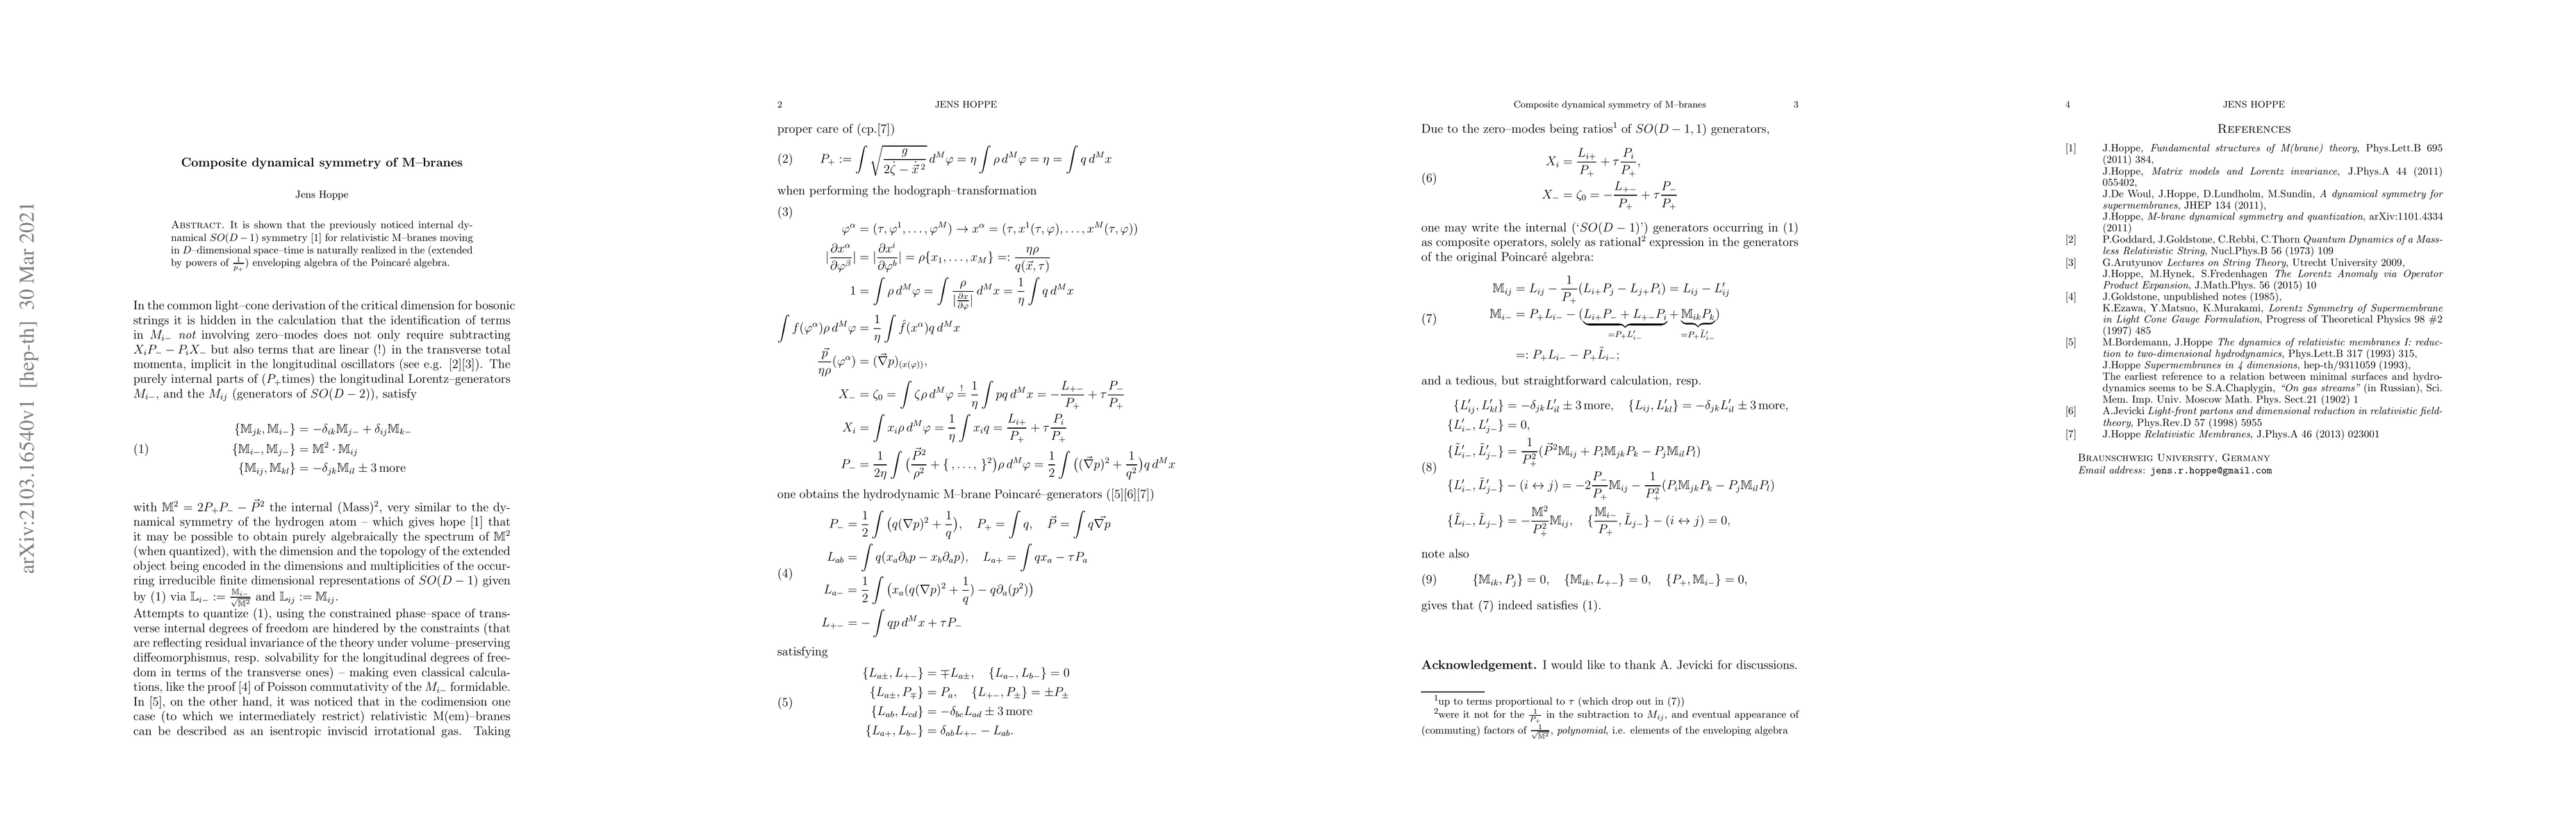 arXiv:2103.16540v1 [hep-th] 30 Mar 2021
Composite dynamical symmetry of M–branes
Jens Hoppe
Abstract. It is shown that the previously noticed internal dy-
namical SO(D − 1) symmetry [1] for relativistic M–branes moving
in D–dimensional space–time is naturally realized in the (extended
by powers of 1/p₊) enveloping algebra of the Poincaré algebra.
In the common light–cone derivation of the critical dimension for bosonic
strings it is hidden in the calculation that the identification of terms
in M_{i−} not involving zero–modes does not only require subtracting
X_iP_− − P_iX_− but also terms that are linear (!) in the transverse total
momenta, implicit in the longitudinal oscillators (see e.g. [2][3]). The
purely internal parts of (P₊times) the longitudinal Lorentz–generators
M_{i−}, and the M_{ij} (generators of SO(D − 2)), satisfy
{𝕄_{jk}, 𝕄_{i−}} = −δ_{ik}𝕄_{j−} + δ_{ij}𝕄_{k−}
(1) {𝕄_{i−}, 𝕄_{j−}} = 𝕄² · 𝕄_{ij}
{𝕄_{ij}, 𝕄_{kl}} = −δ_{jk}𝕄_{il} ± 3 more
with 𝕄² = 2P₊P₋ − P⃗² the internal (Mass)², very similar to the dy-
namical symmetry of the hydrogen atom – which gives hope [1] that
it may be possible to obtain purely algebraically the spectrum of 𝕄²
(when quantized), with the dimension and the topology of the extended
object being encoded in the dimensions and multiplicities of the occur-
ring irreducible finite dimensional representations of SO(D − 1) given
by (1) via 𝕃_{i−} := 𝕄_{i−}/√𝕄² and 𝕃_{ij} := 𝕄_{ij}.
Attempts to quantize (1), using the constrained phase–space of trans-
verse internal degrees of freedom are hindered by the constraints (that
are reflecting residual invariance of the theory under volume–preserving
diffeomorphismus, resp. solvability for the longitudinal degrees of free-
dom in terms of the transverse ones) – making even classical calcula-
tions, like the proof [4] of Poisson commutativity of the M_{i−} formidable.
In [5], on the other hand, it was noticed that in the codimension one
case (to which we intermediately restrict) relativistic M(em)–branes
can be described as an isentropic inviscid irrotational gas. Taking
2 JENS HOPPE
proper care of (cp.[7])
(2) P₊ := ∫ √(g/(2ζ̇ − ẋ⃗²)) d^Mφ = η ∫ ρ d^Mφ = η = ∫ q d^Mx
when performing the hodograph–transformation
(3)
φ^α = (τ, φ¹, . . . , φ^M) → x^α = (τ, x¹(τ, φ), . . . , x^M(τ, φ))
|∂x^α/∂φ^β| = |∂x^i/∂φ^b| = ρ{x₁, . . . , x_M} =: ηρ/q(x⃗, τ)
1 = ∫ ρ d^Mφ = ∫ ρ/|∂x/∂φ| d^Mx = 1/η ∫ q d^Mx
∫ f(φ^α)ρ d^Mφ = 1/η ∫ f̂(x^α)q d^Mx
p⃗/ηρ (φ^α) = (∇⃗p)_{(x(φ))},
X₋ = ζ₀ = ∫ ζρ d^Mφ =! 1/η ∫ pq d^Mx = −L_{+−}/P₊ + τ P₋/P₊
X_i = ∫ x_iρ d^Mφ = 1/η ∫ x_iq = L_{i+}/P₊ + τ P_i/P₊
P₋ = 1/2η ∫ (P⃗²/ρ² + { , . . . , }²)ρ d^Mφ = 1/2 ∫ ((∇⃗p)² + 1/q²)q d^Mx
one obtains the hydrodynamic M–brane Poincaré–generators ([5][6][7])
P₋ = 1/2 ∫ (q(∇p)² + 1/q), P₊ = ∫ q, P⃗ = ∫ q∇⃗p
L_{ab} = ∫ q(x_a∂_bp − x_b∂_ap), L_{a+} = ∫ qx_a − τP_a
(4)
L_{a−} = 1/2 ∫ (x_a(q(∇p)² + 1/q) − q∂_a(p²))
L_{+−} = − ∫ qp d^Mx + τP₋
satisfying
{L_{a±}, L_{+−}} = ∓L_{a±}, {L_{a−}, L_{b−}} = 0
{L_{a±}, P_∓} = P_a, {L_{+−}, P_±} = ±P_±
(5)
{L_{ab}, L_{cd}} = −δ_{bc}L_{ad} ± 3 more
{L_{a+}, L_{b−}} = δ_{ab}L_{+−} − L_{ab}.
Composite dynamical symmetry of M–branes 3
Due to the zero–modes being ratios¹ of SO(D − 1, 1) generators,
X_i = L_{i+}/P₊ + τ P_i/P₊,
(6)
X₋ = ζ₀ = −L_{+−}/P₊ + τ P₋/P₊
one may write the internal (‘SO(D − 1)’) generators occurring in (1)
as composite operators, solely as rational² expression in the generators
of the original Poincaré algebra:
𝕄_{ij} = L_{ij} − 1/P₊ (L_{i+}P_j − L_{j+}P_i) = L_{ij} − L′_{ij}
(7) 𝕄_{i−} = P₊L_{i−} − (L_{i+}P₋ + L_{+−}P_i + 𝕄_{ik}P_k)
=P₊L′_{i−} =P₊L̃′_{i−}
=: P₊L_{i−} − P₊L̃_{i−};
and a tedious, but straightforward calculation, resp.
{L′_{ij}, L′_{kl}} = −δ_{jk}L′_{il} ± 3 more, {L_{ij}, L′_{kl}} = −δ_{jk}L′_{il} ± 3 more,
{L′_{i−}, L′_{j−}} = 0,
{L̃′_{i−}, L̃′_{j−}} = 1/P₊² (P⃗²𝕄_{ij} + P_i𝕄_{jk}P_k − P_j𝕄_{il}P_l)
(8)
{L′_{i−}, L̃′_{j−}} − (i ↔ j) = −2 P₋/P₊ 𝕄_{ij} − 1/P₊² (P_i𝕄_{jk}P_k − P_j𝕄_{il}P_l)
{L̃_{i−}, L̃_{j−}} = −𝕄²/P₊² 𝕄_{ij}, {𝕄_{i−}/P₊, L̃_{j−}} − (i ↔ j) = 0,
note also
(9) {𝕄_{ik}, P_j} = 0, {𝕄_{ik}, L_{+−}} = 0, {P₊, 𝕄_{i−}} = 0,
gives that (7) indeed satisfies (1).
Acknowledgement. I would like to thank A. Jevicki for discussions.
¹up to terms proportional to τ (which drop out in (7))
²were it not for the 1/P₊ in the subtraction to M_{ij}, and eventual appearance of
(commuting) factors of 1/√𝕄², polynomial, i.e. elements of the enveloping algebra
4 JENS HOPPE
References
[1] J.Hoppe, Fundamental structures of M(brane) theory, Phys.Lett.B 695
(2011) 384,
J.Hoppe, Matrix models and Lorentz invariance, J.Phys.A 44 (2011)
055402,
J.De Woul, J.Hoppe, D.Lundholm, M.Sundin, A dynamical symmetry for
supermembranes, JHEP 134 (2011),
J.Hoppe, M-brane dynamical symmetry and quantization, arXiv:1101.4334
(2011)
[2] P.Goddard, J.Goldstone, C.Rebbi, C.Thorn Quantum Dynamics of a Mass-
less Relativistic String, Nucl.Phys.B 56 (1973) 109
[3] G.Arutyunov Lectures on String Theory, Utrecht University 2009,
J.Hoppe, M.Hynek, S.Fredenhagen The Lorentz Anomaly via Operator
Product Expansion, J.Math.Phys. 56 (2015) 10
[4] J.Goldstone, unpublished notes (1985),
K.Ezawa, Y.Matsuo, K.Murakami, Lorentz Symmetry of Supermembrane
in Light Cone Gauge Formulation, Progress of Theoretical Physics 98 #2
(1997) 485
[5] M.Bordemann, J.Hoppe The dynamics of relativistic membranes I: reduc-
tion to two-dimensional hydrodynamics, Phys.Lett.B 317 (1993) 315,
J.Hoppe Supermembranes in 4 dimensions, hep-th/9311059 (1993),
The earliest reference to a relation between minimal surfaces and hydro-
dynamics seems to be S.A.Chaplygin, “On gas streams” (in Russian), Sci.
Mem. Imp. Univ. Moscow Math. Phys. Sect.21 (1902) 1
[6] A.Jevicki Light-front partons and dimensional reduction in relativistic field-
theory, Phys.Rev.D 57 (1998) 5955
[7] J.Hoppe Relativistic Membranes, J.Phys.A 46 (2013) 023001
Braunschweig University, Germany
Email address: jens.r.hoppe@gmail.com